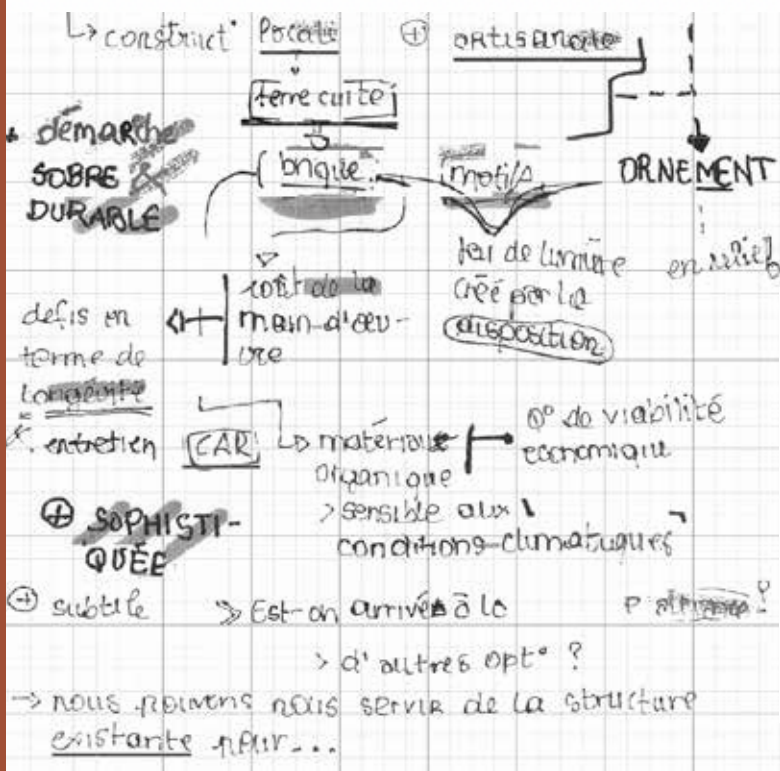 ↳ construct° locale
⊕ artisanale
terre cuite
+ démarche
SOBRE &
DURABLE
brique
motifs
ORNEMENT
jeu de lumière
créé par la
disposition
en relief
coût de la
main-d'œu-
vre
défis en
terme de
longévité
entretien
CAR
↳ matériau
organique
> sensible aux
conditions climatiques
Q° de viabilité
économique
⊕ SOPHISTI-
QUÉE
⊕ subtile
» Est-on arrivés à la
> d'autres opt° ?
→ nous pouvons nous servir de la structure
existante pour...